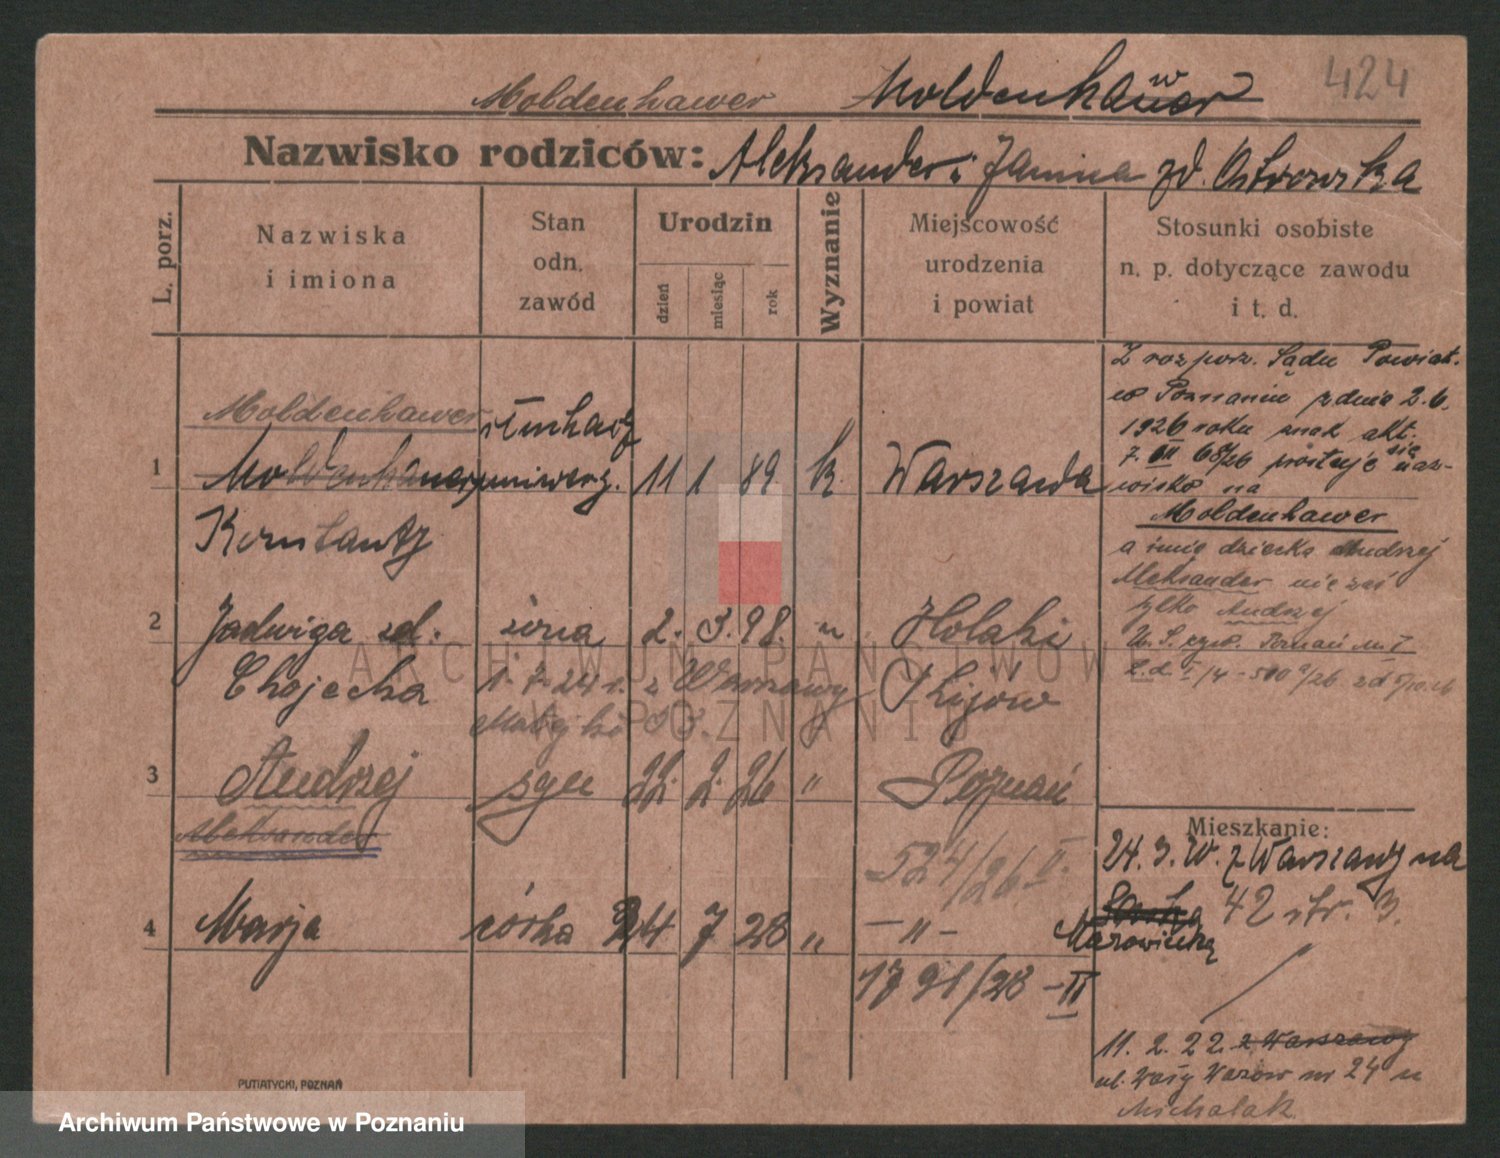 424
Moldenhawer Moldenhauer w
Nazwisko rodziców: Aleksander i Janina zd. Ostrowska
L. porz.
Nazwiska
i imiona
Stan
odn.
zawód
Urodzin
dzień
miesiąc
rok
Wyznanie
Miejscowość
urodzenia
i powiat
Stosunki osobiste
n. p. dotyczące zawodu
i t. d.
Z rozporz. Sądu Powiat.
w Poznaniu z dnia 2.6.
1926 roku znak akt.
7. III 68/26 prostuje się naz-
wisko na
Moldenhawer
a imię dziecka Andrzej
Aleksander nie zaś
tylko Andrzej
U. S. Poznań
Moldenhawer słuchacz
1 Moldenhauer uniwerz. 11 1 89 k. Warszawa
Konstanty
2 Jadwiga zd. żona 2. 3. 98. " Holaki
Chojecka 1. 7. 24 r. z Warszawy Kijów
Matejki 53.
3 Andrzej syn 22. 2. 26 " Poznań
Aleksander
524/26 II.
4 Marja córka 24 7 28 " - " -
1791/28 - II
Mieszkanie:
24. 3. W. z Warszawy na
42 ptr. 3.
Mazowiecką
11. 2. 22. z Warszawy
ul. Wały Wazów nr 24 u
Michalak.
PUTIATYCKI, POZNAŃ
ARCHIWUM PAŃSTWOWE
W POZNANIU
Archiwum Państwowe w Poznaniu